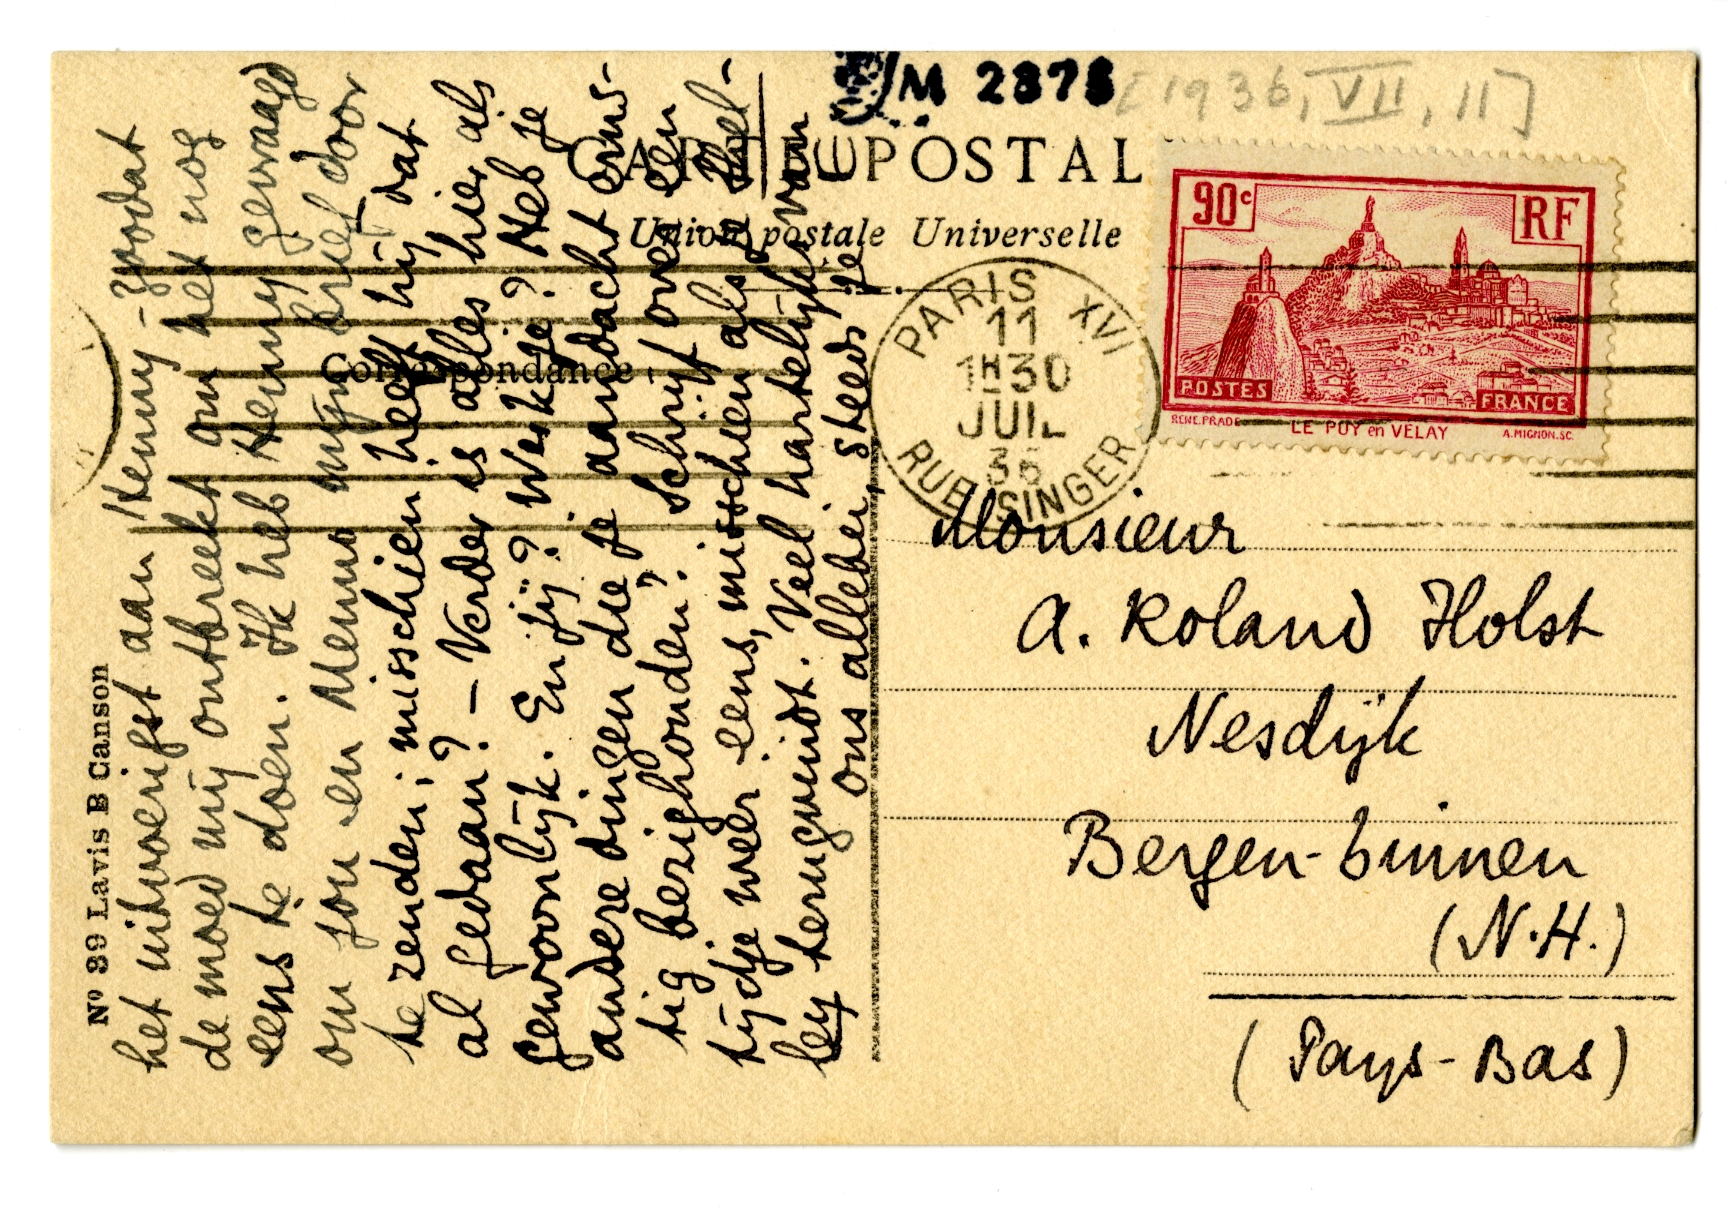 M 2378
[1936, VII, 11]
CARTE POSTAL
Union postale Universelle
Correspondance
PARIS XVI
11
1H30
JUIL
36
RUE SINGER
90c
RF
POSTES
FRANCE
RENE.PRADE
LE PUY en VELAY
A.MIGNON.SC.
Monsieur
A. Roland Holst
Nesdijk
Bergen-binnen
(N.H.)
(Pays-Bas)
No 39 Lavis B Canson
het uitvoerigst aan Henny - zoodat
de moed mij ontbreekt om het nog
eens te doen. Ik heb Henny gevraagd
om jou en Menno mijn brief door
te zenden; misschien heeft hij dat
al gedaan? - Verder is alles hier als
gewoonlijk. En jij? Werk je? Heb je
andere dingen die je aandacht erns-
tig bezighouden? Schrijf over een
tijdje weer eens, misschien als je Shel-
ley terugvindt. Veel hartelijks van
ons allebei, steeds je